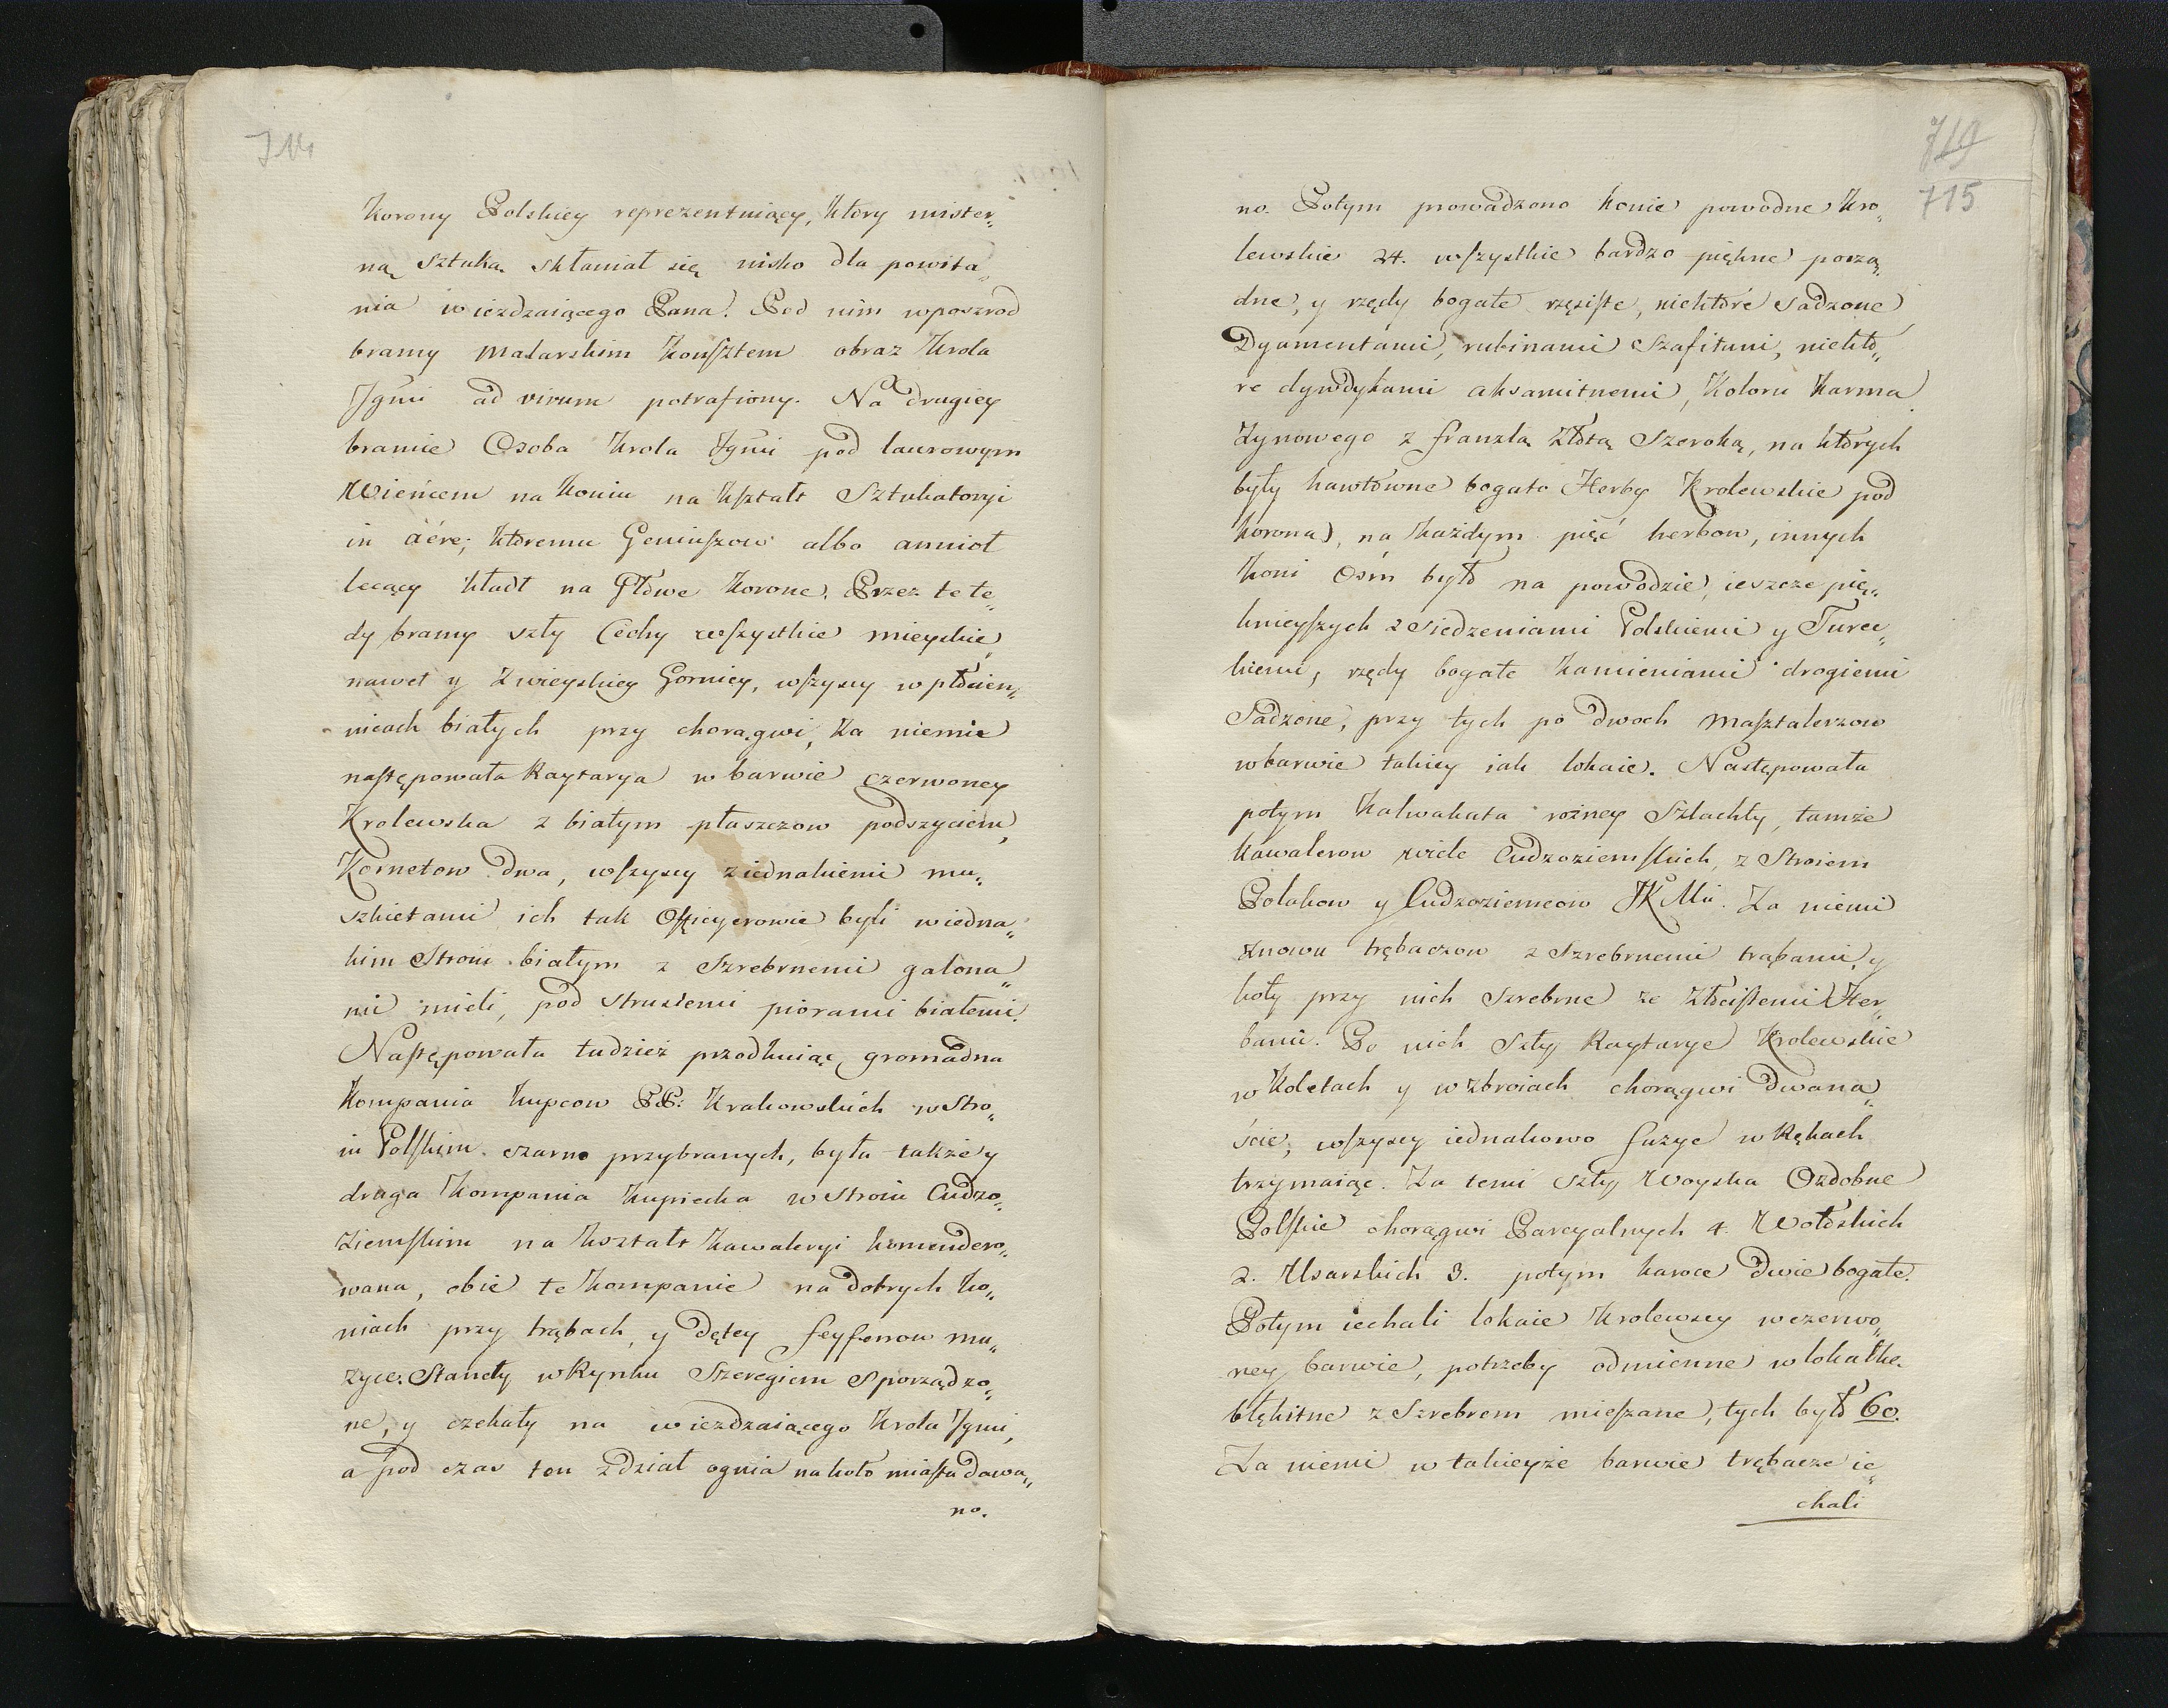 714
Korony Polskiey reprezentuiący, ktory mister„
ną sztuką skłaniał się nisko dla powita„
nia wieżdzaiącego Pana. Pod nim wposzrod
bramy Malarskim Konſztem obraz Krola
Jgmi ad vivum potrafiony. Na drugiey
bramie Osoba Krola Jgmi pod laurowym
Wieńcem na Koniu na Kſztałt Sztukatoryi
in aëre; ktoremu Geniuſzow albo annioł
lecący kładł na Głowe Korone. Przez te te„
dy bramy szły Cechy wſzystkie mieyskie,
nawet y Zwieyskiey Gorniey, wſzyscy w płócien„
nicach białych przy chorągwi, Za niemi
naſtępowała Raytarya w barwie czerwoney
Krolewska z białym płaszczow podszyciem,
Kornetow dwa, wſzyscy ziednakiemi mu„
szkietami ich tak Officyerowie byli wiedna„
kim Stroiu białym z Szrebrnemi galona„
mi mieli, pod strusiemi piórami białemi.
Naſtępowała tudzież przodkuiąc gromadna
Kompania Kupcow PP: Krakowskich w Stro„
iu Polſkim czarno przybranych, była także y
druga Kompania Kupiecka w Stroiu Cudzo„
Ziemſkim na Kształt Kawaleryi komendero„
wana, obie te Kompanie na dobrych Ko„
niach przy trąbach, y dętey feyferow mu„
zyce. Stanęły w Rynku Szeregiem sporządzo„
ne, y czekały na wieżdzaiącego Krola Jgmi,
a pod czas ten zdział ognia na koło miaſta dawa„
no.
719
715
no. Potym prowadzono konie powodne Kro„
lewskie 24. wſzystkie bardzo piękne porzą„
dne, y rzędy bogate rzęsiſte, niektóre sadzone
Dyamentami, rubinami Szafirami, niektó„
re dywdykami aksamitnemi, Koloru Karma
zynowego z franzlą Złotą Szeroką, na których
były hawtowne bogato Herby Krolewskie pod
koroną, na każdym pięć herbow, innych
koni Osm było na powodzie, ieszcze pię„
knieyſzych z siedzeniami Polskiemi y Turec„
kiemi, rzędy bogate kamieniami drogiemi
Sadzone, przy tych po dwoch Maſztalerzow
w barwie takiey iak lokaie. Nastąpowała
potym Kalwakata rożney Szlachty, tamże
kawalerow wiele Cudzoziemſkich, z Stroiem
Polakow y Cudzoziemcow JKMci. Za niemi
znowu trębaczow z Szrebrnemi trąbami, y
koły przy nich Szrebrne ze złociſtemi Her„
bami. Po nich Szły Raytarye Krolewskie
w Koletach y w zbroiach chorągwi dwana„
ście, wſzyscy iednakowo fuzye w Rękach
trzymaiąc. Za temi szły Woyska Ozdobne
Polſkie chorągwi Parcyalnych 4. Wołoskich
2. Usarskich 3. potym karoce dwie bogate.
Potym iechali lokaie Krolewscy wczerwo„
ney barwie, potrzeby odmienne w lokałke
błękitne z Szrebrem mieſzane, tych było 60.
Za niemi w takieyże barwie trębacze ie„
chali